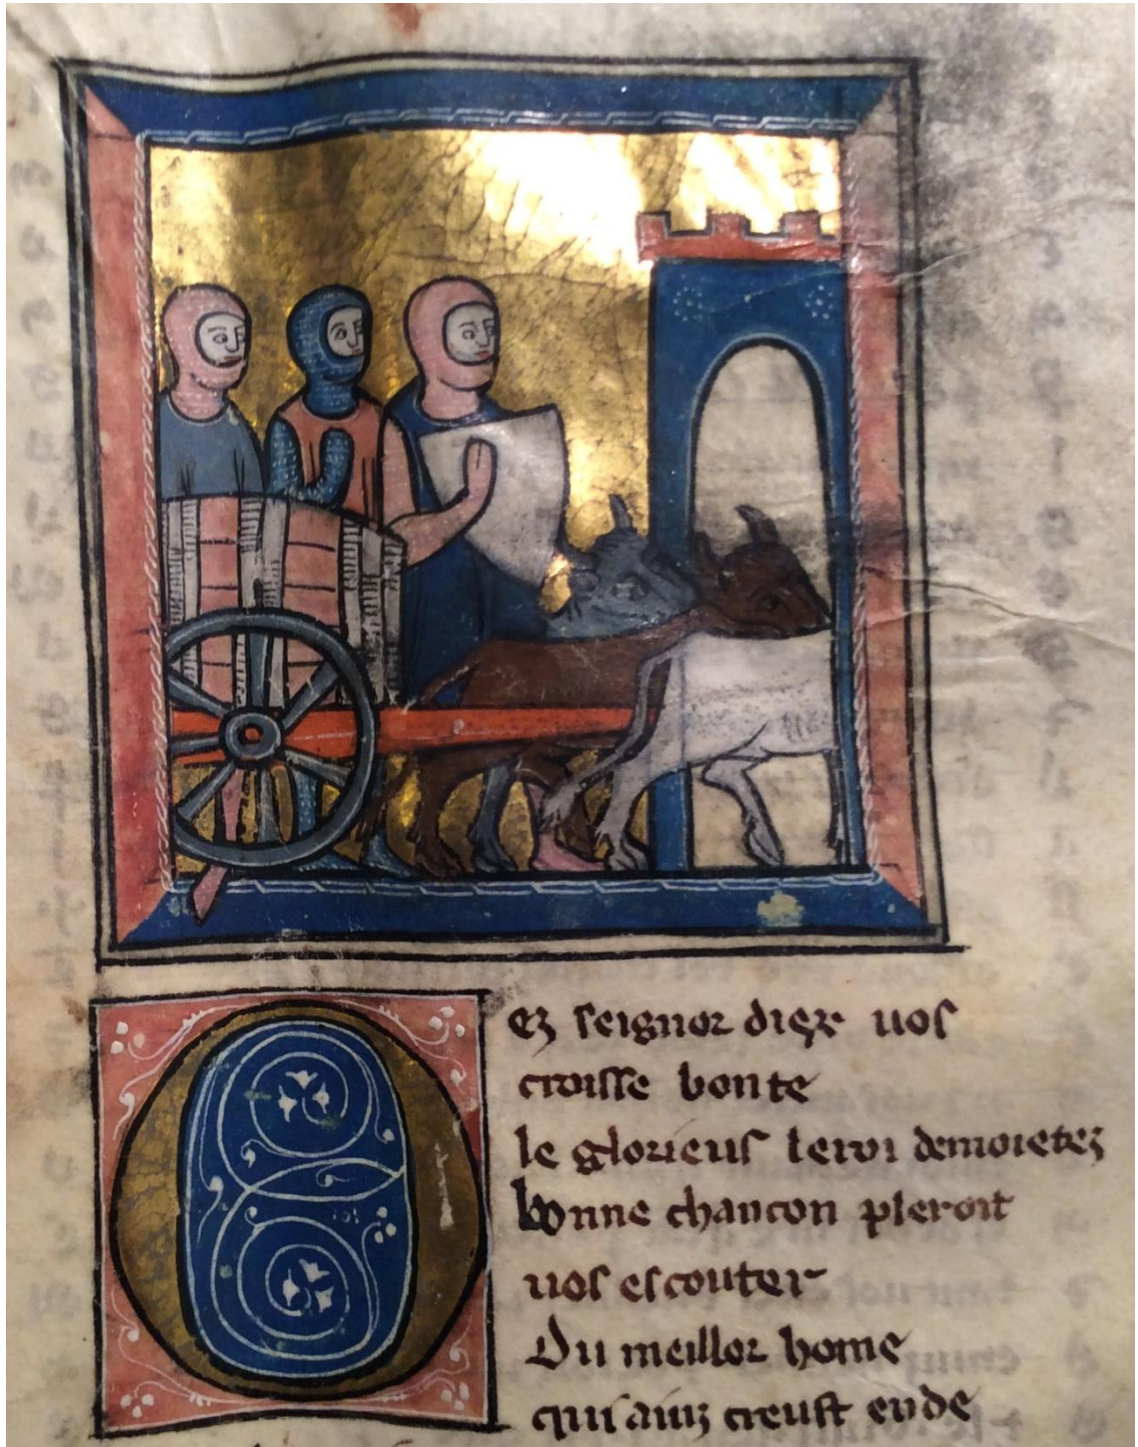 Oez seignor diex vos
croisse bonte
le glorieus le roi demoietez
bonne chancon pleroit
vos escouter
Du meillor home
qui ainz creust en de